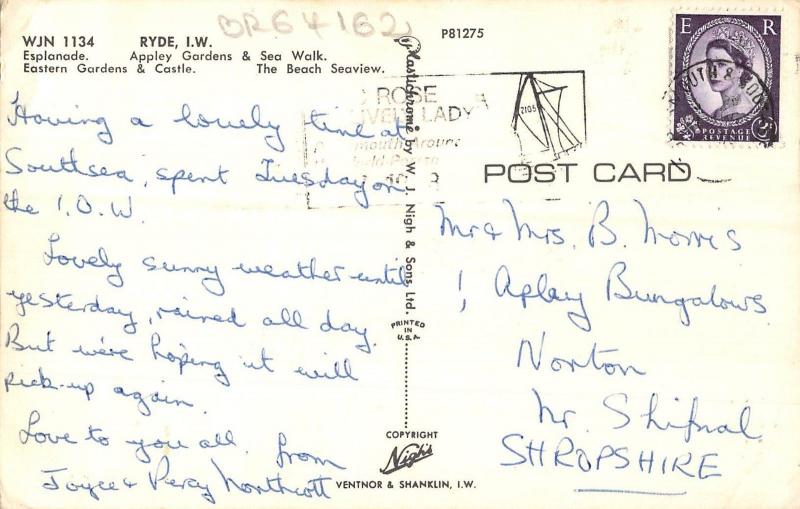 BR64162
P81275
WJN 1134 RYDE, I.W.
Esplanade. Appley Gardens & Sea Walk.
Eastern Gardens & Castle. The Beach Seaview.
E R
POSTAGE
REVENUE
ROSE
LADY
Plastichrome by W. J. Nigh & Sons, Ltd.
POST CARD
Having a lovely time at
Southsea, spent Tuesday on
the I.O.W.
Lovely sunny weather until
yesterday, rained all day.
But we're hoping it will
pick-up again.
Love to you all. from
Joyce & Percy Northcott
PRINTED
IN
U.S.A.
COPYRIGHT
Nigh's
VENTNOR & SHANKLIN, I.W.
Mr & Mrs. B. Morris
1, Apley Bungalows
Norton
Nr. Shifnal
SHROPSHIRE